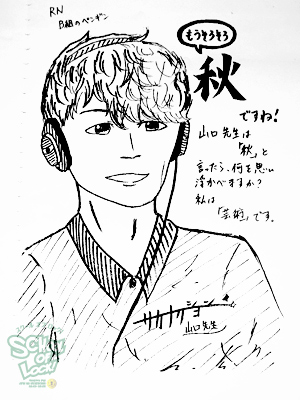 RN
B組のペンギン
もうそろそろ
秋
ですね!
山口先生は
「秋」と
言ったら、何を思い
浮かべますか?
私は
「芸術」です。
サカナクション
山口先生
School
Of
Lock!